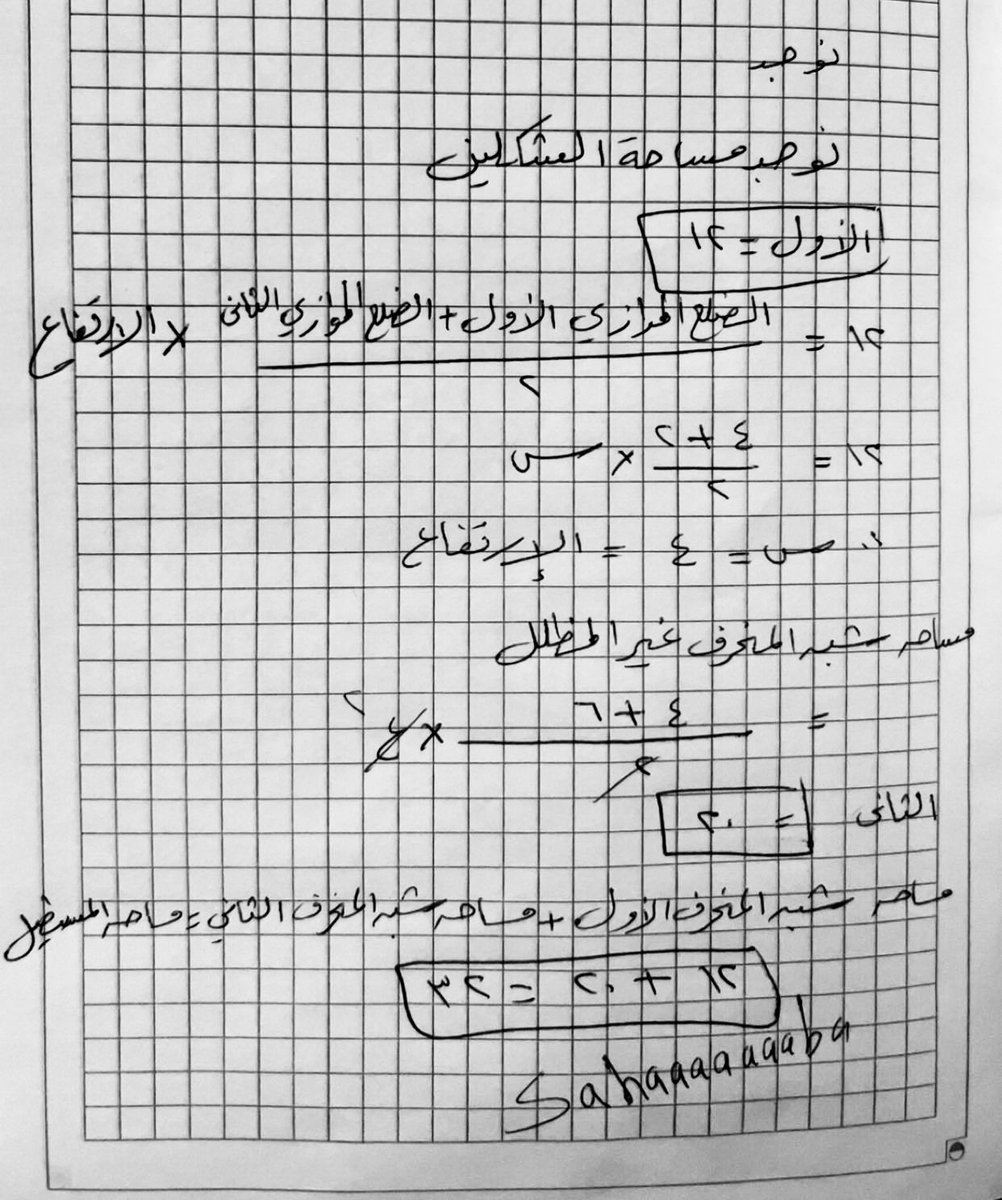 نوجد
نوجد مساحة الشكلين
الأول = ١٢
١٢ = الضلع الموازي الأول + الضلع الموازي الثاني / ٢ × الارتفاع
١٢ = ٤ + ٢ / ٢ × س
∴ س = ٤ = الإرتفاع
مساحه شبه المنحرف غير المظلل
= ٤ + ٦ / ٢ × ٤ ٢
الثانى = ٢٠
مساحه شبه المنحرف الأول + مساحه شبه المنحرف الثاني = مساحه المستطيل
١٢ + ٢٠ = ٣٢
Sahaaaaaaaba